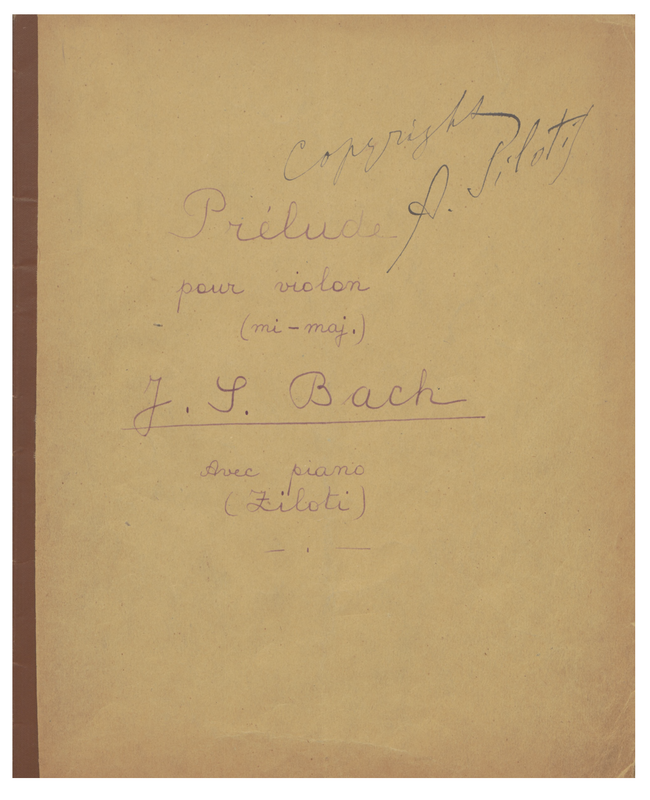 Copyright
A. Siloti
Prélude
pour violon
(mi-maj.)
J. S. Bach
Avec piano
(Ziloti)